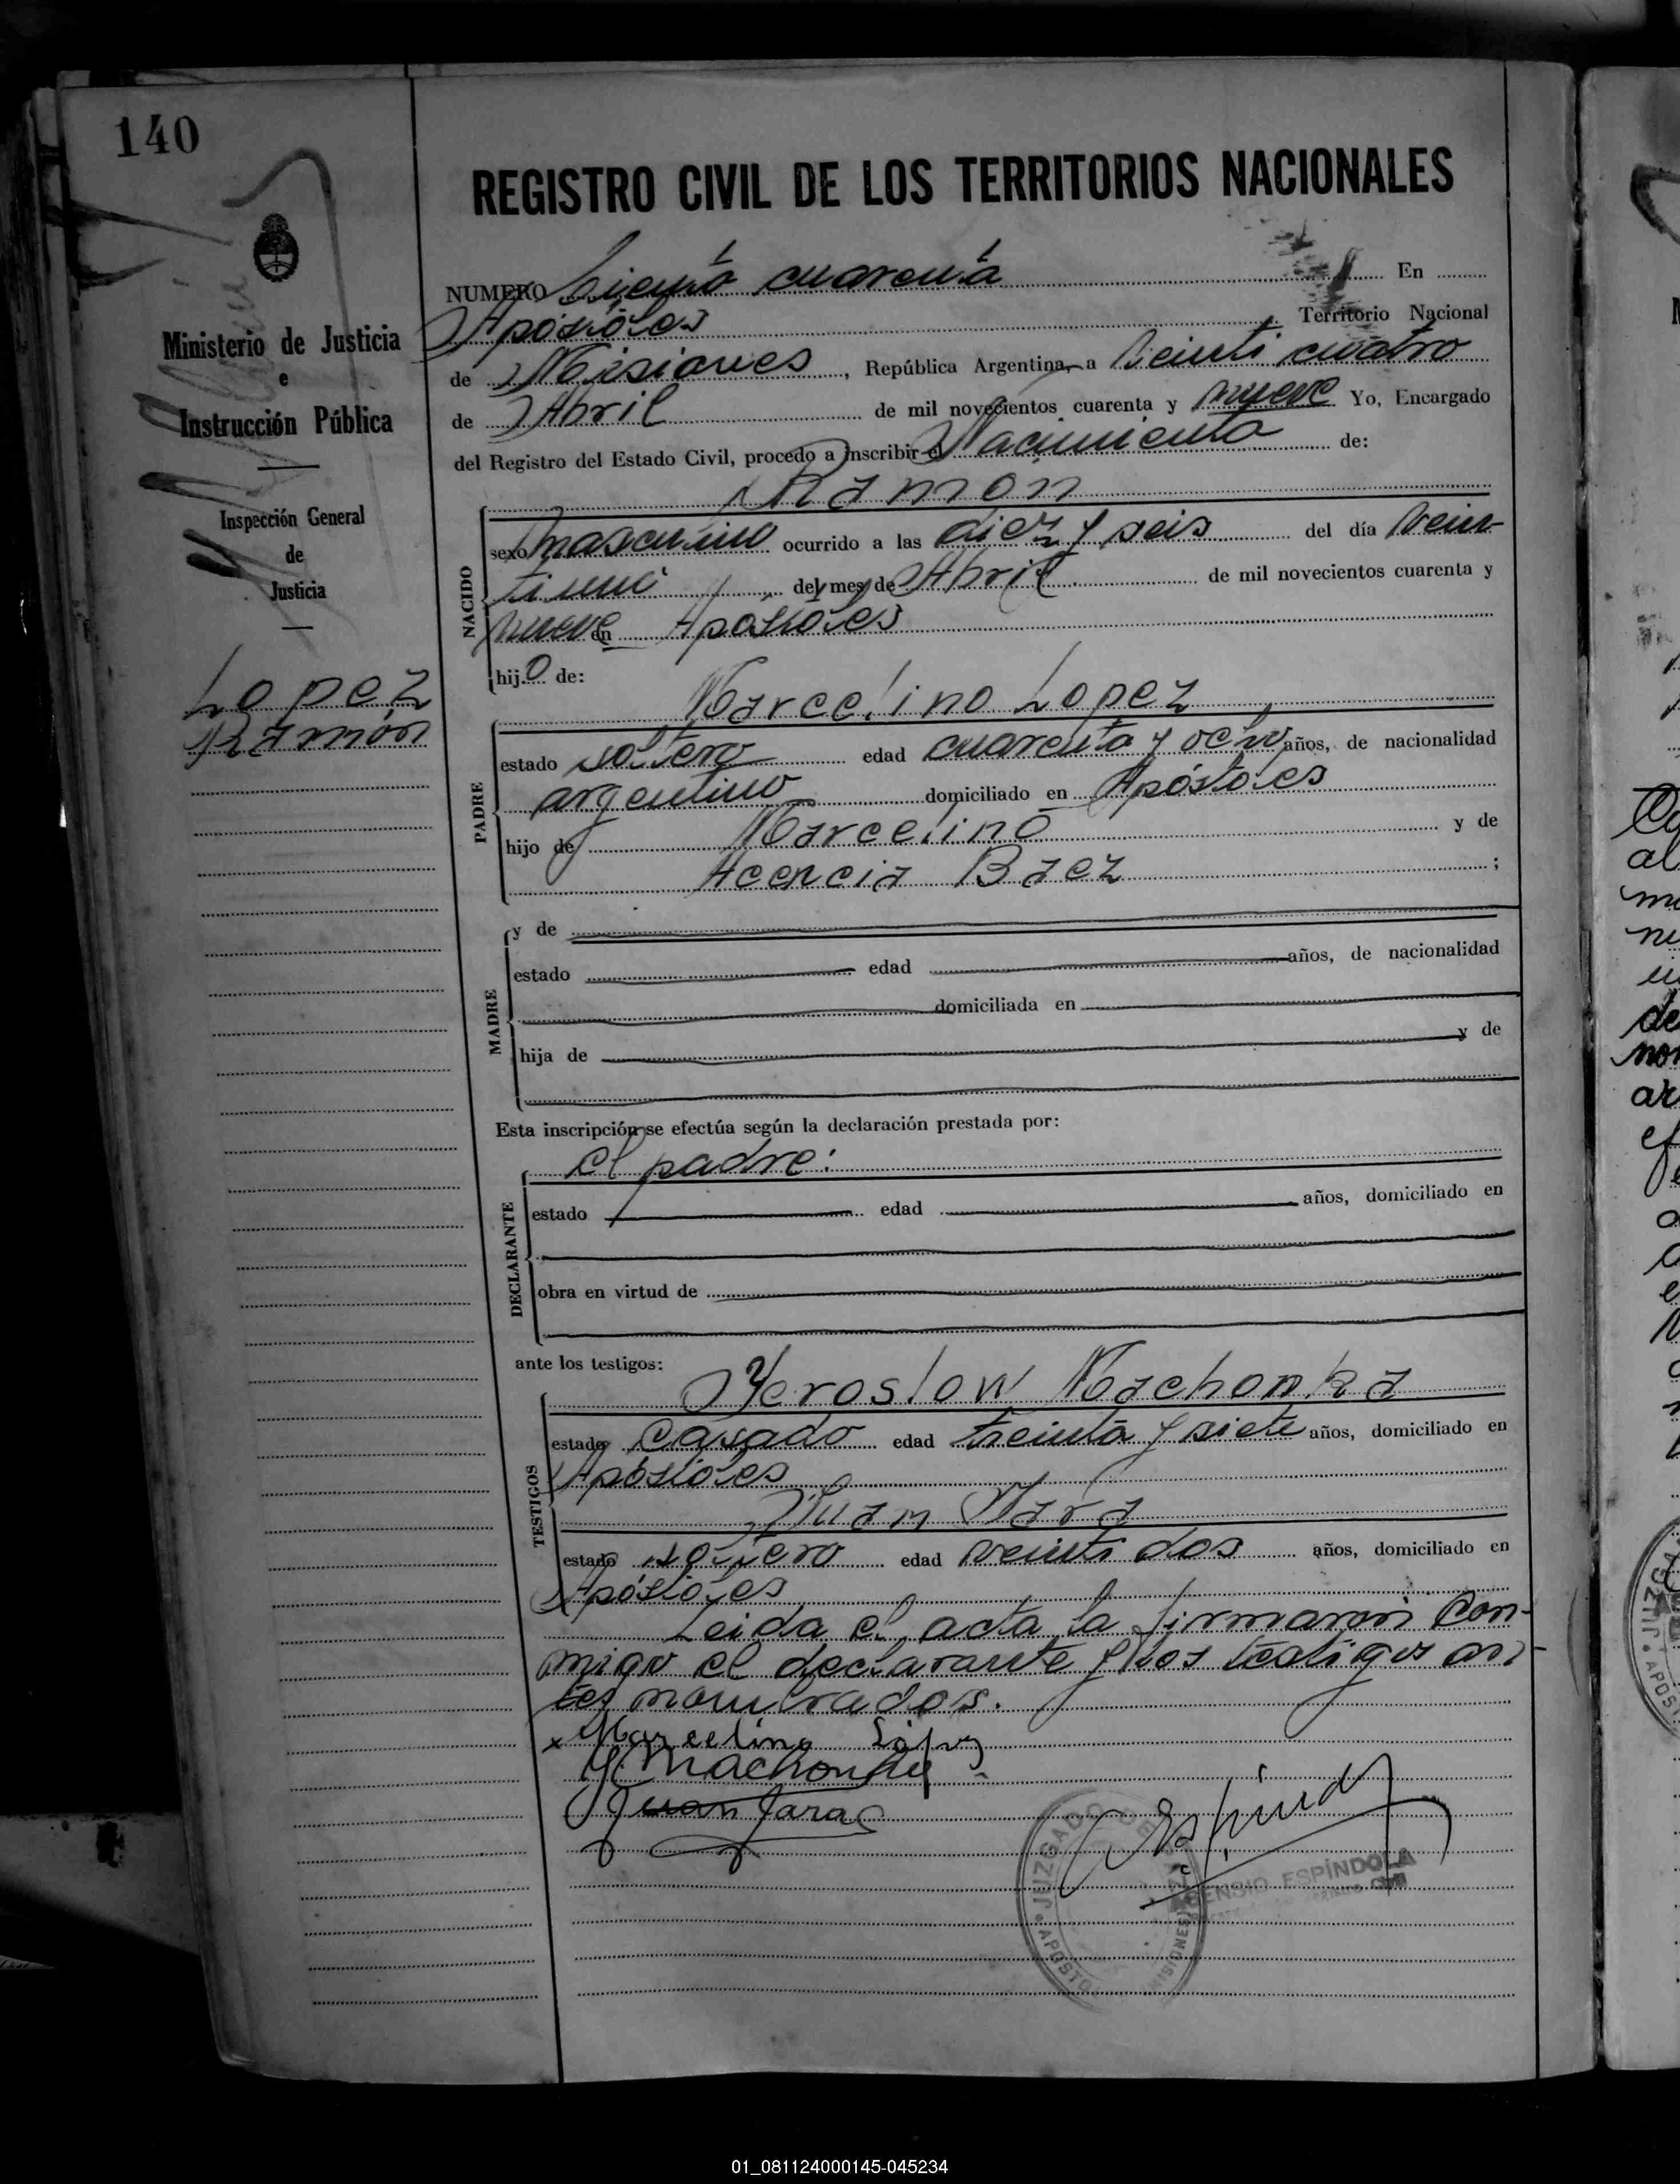 140
REGISTRO CIVIL DE LOS TERRITORIOS NACIONALES
NUMERO Ciento cuarenta En
Apóstoles Territorio Nacional
de Misiones, República Argentina, a veinti cuatro
de Abril de mil novecientos cuarenta y nueve Yo, Encargado
del Registro del Estado Civil, procedo a inscribir el Nacimiento de:
Ministerio de Justicia
e
Instrucción Pública
Inspección General
de
Justicia
Lopez
Ramón
Ramón
NACIDO
sexo masculino ocurrido a las diez y seis del día vein-
tiuno del mes de Abril de mil novecientos cuarenta y
nueve en Apóstoles
hijo de:
Marcelino Lopez
PADRE
estado soltero edad cuarenta y ocho años, de nacionalidad
argentino domiciliado en Apóstoles
hijo de Marcelino y de
Acencia Baez ;
MADRE
y de
estado edad años, de nacionalidad
domiciliada en
hija de y de
Esta inscripción se efectúa según la declaración prestada por:
el padre:
DECLARANTE
estado edad años, domiciliado en
obra en virtud de
ante los testigos:
TESTIGOS
Yeroslow Machonka
estado casado edad treinta y siete años, domiciliado en
Apóstoles
Juan Jara
estado soltero edad veinti dos años, domiciliado en
Apóstoles
Leida el acta la firmaron con-
migo el declarante y los testigos an-
tes nombrados.
x Marcelino López
Y. Machonka
Juan Jara
Espíndola
JUZGADO DE PAZ
APOSTOLES
MISIONES
ASENSIO ESPÍNDOLA
01_081124000145-045234